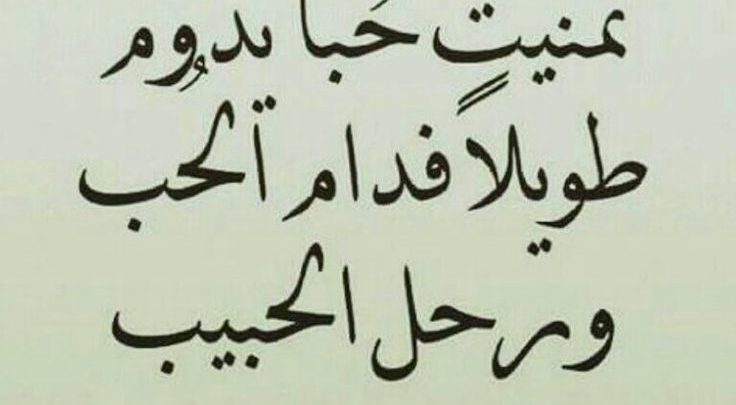 تمنيت حبا يدوم
طويلاً فدام الحُب
ورحل الحبيب